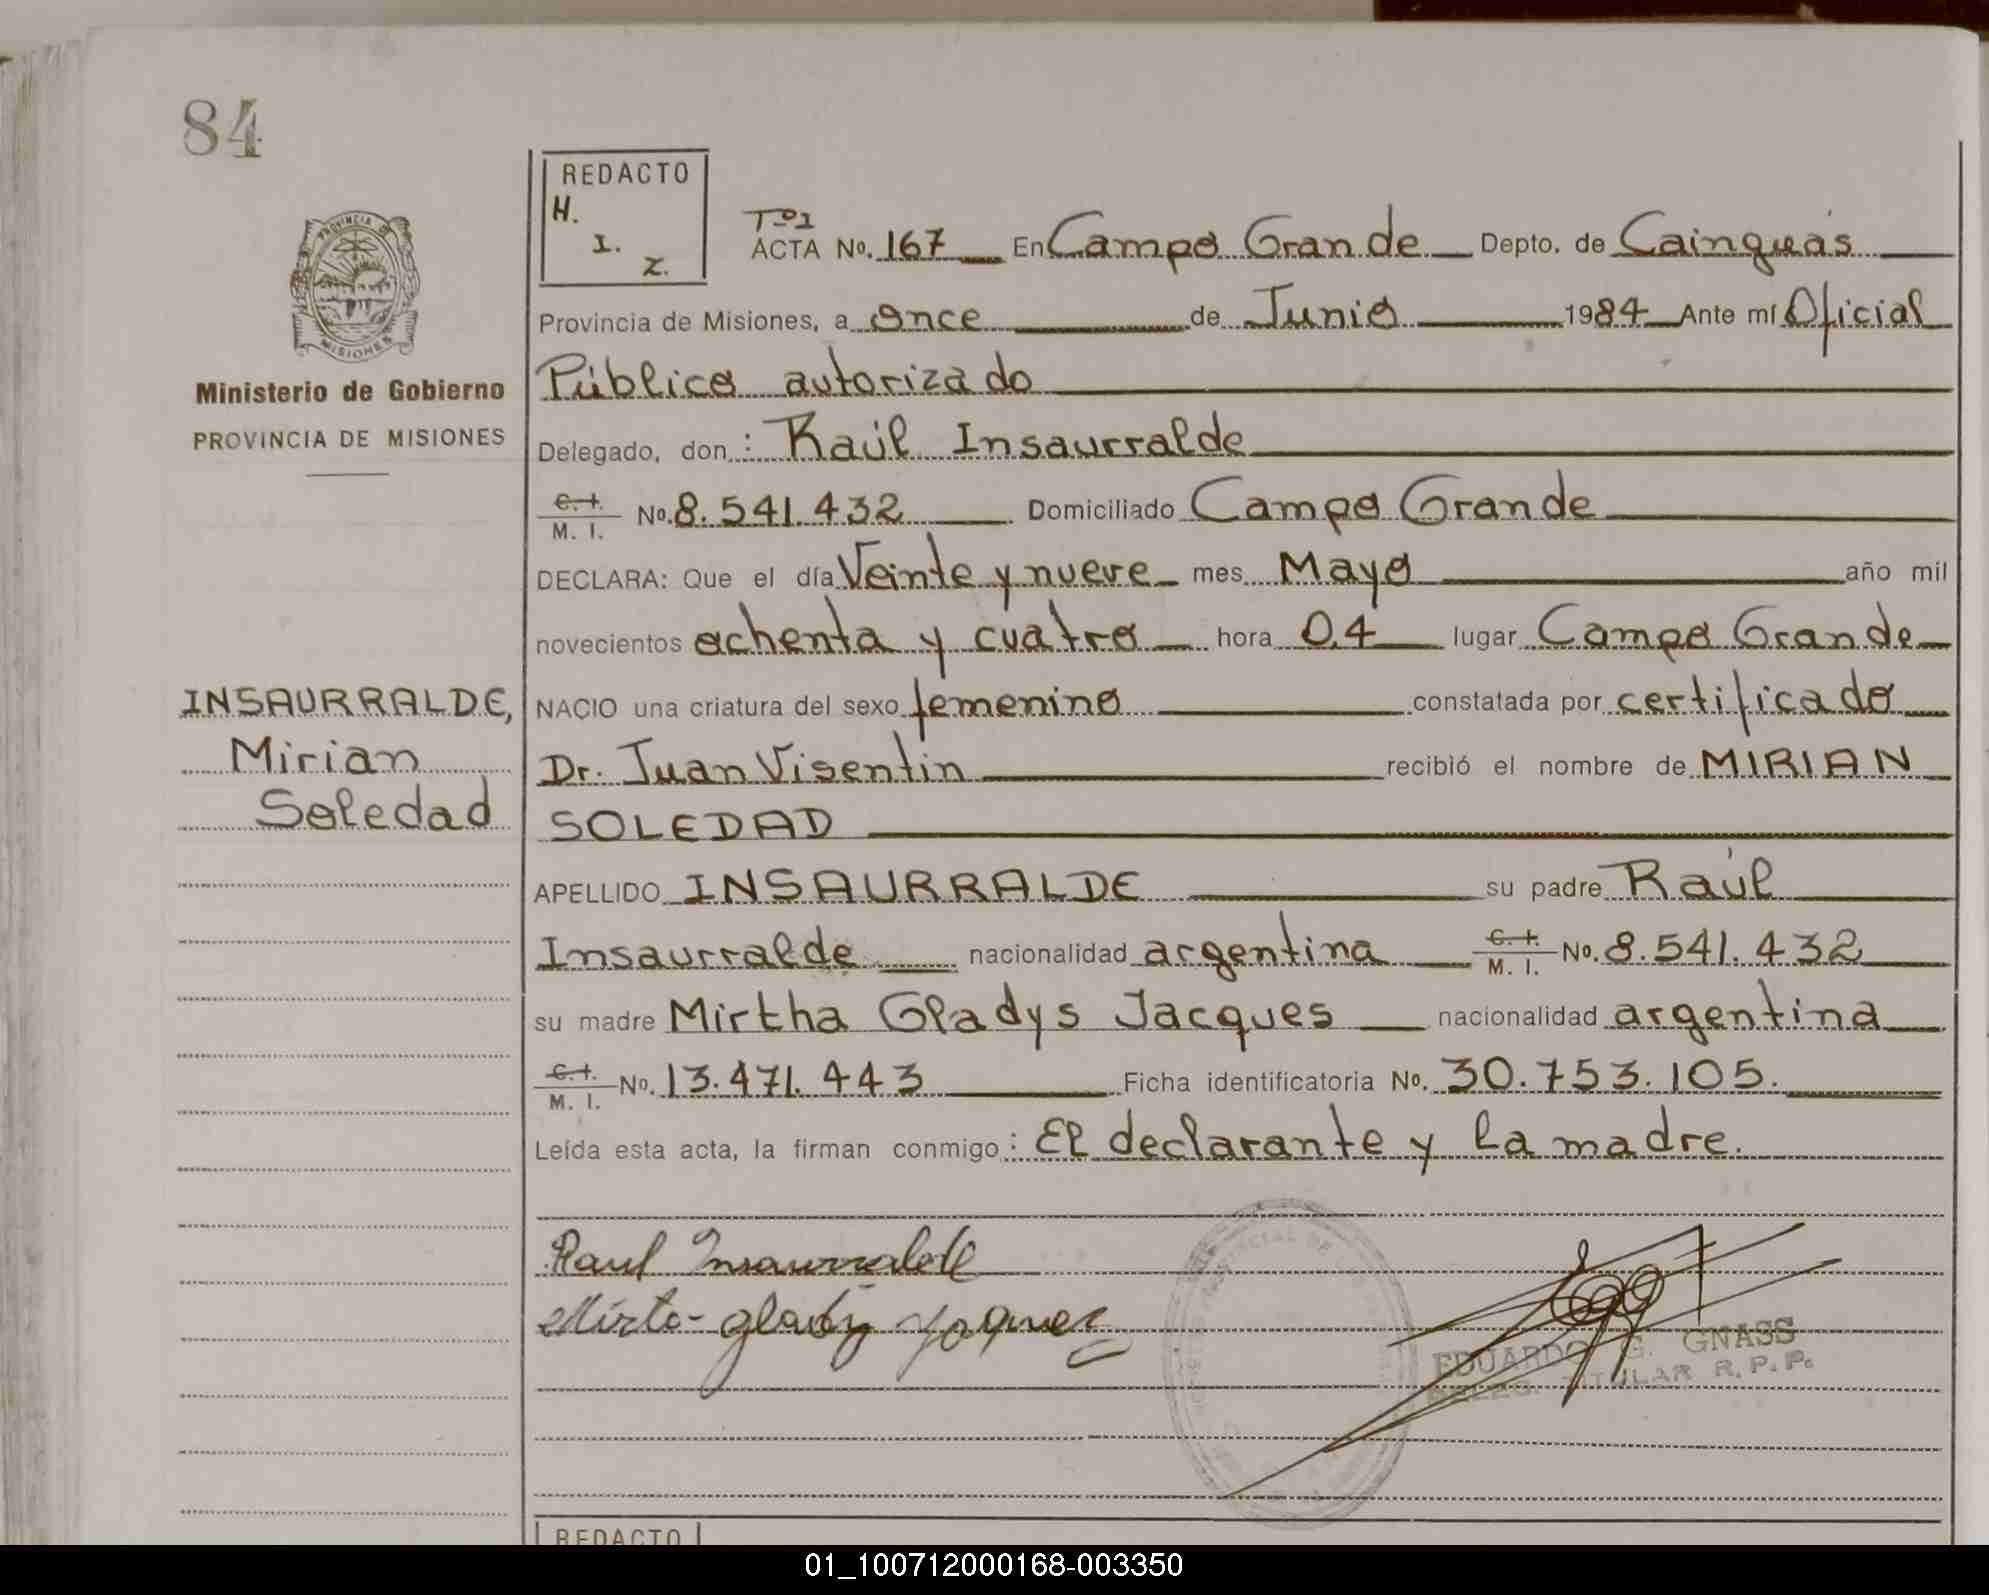 84
REDACTO
H.
I.
Z.
Tº1
ACTA Nº. 167 En Campo Grande Depto. de Cainguás
Provincia de Misiones, a once de Junio 1984 Ante mí Oficial
Público autorizado
Delegado, don: Raúl Insaurralde
C.I. M. I. Nº. 8.541.432 Domiciliado Campo Grande
DECLARA: Que el día Veinte y nueve mes Mayo año mil
novecientos ochenta y cuatro hora 04 lugar Campo Grande
NACIO una criatura del sexo femenino constatada por certificado
Dr. Juan Visentin recibió el nombre de MIRIAN
SOLEDAD
APELLIDO INSAURRALDE su padre Raúl
Insaurralde nacionalidad argentina C.I. M. I. Nº. 8.541.432
su madre Mirtha Gladys Jacques nacionalidad argentina
C.I. M. I. Nº. 13.471.443 Ficha identificatoria Nº. 30.753.105.
Leída esta acta, la firman conmigo: El declarante y la madre.
Raul Insaurralde
Mirta-glady Jaquez
EDUARDO G. GNASS
DELEG. TITULAR R.P.P.
PROVINCIA DE
MISIONES
Ministerio de Gobierno
PROVINCIA DE MISIONES
INSAURRALDE,
Mirian
Soledad
REDACTO
01_100712000168-003350